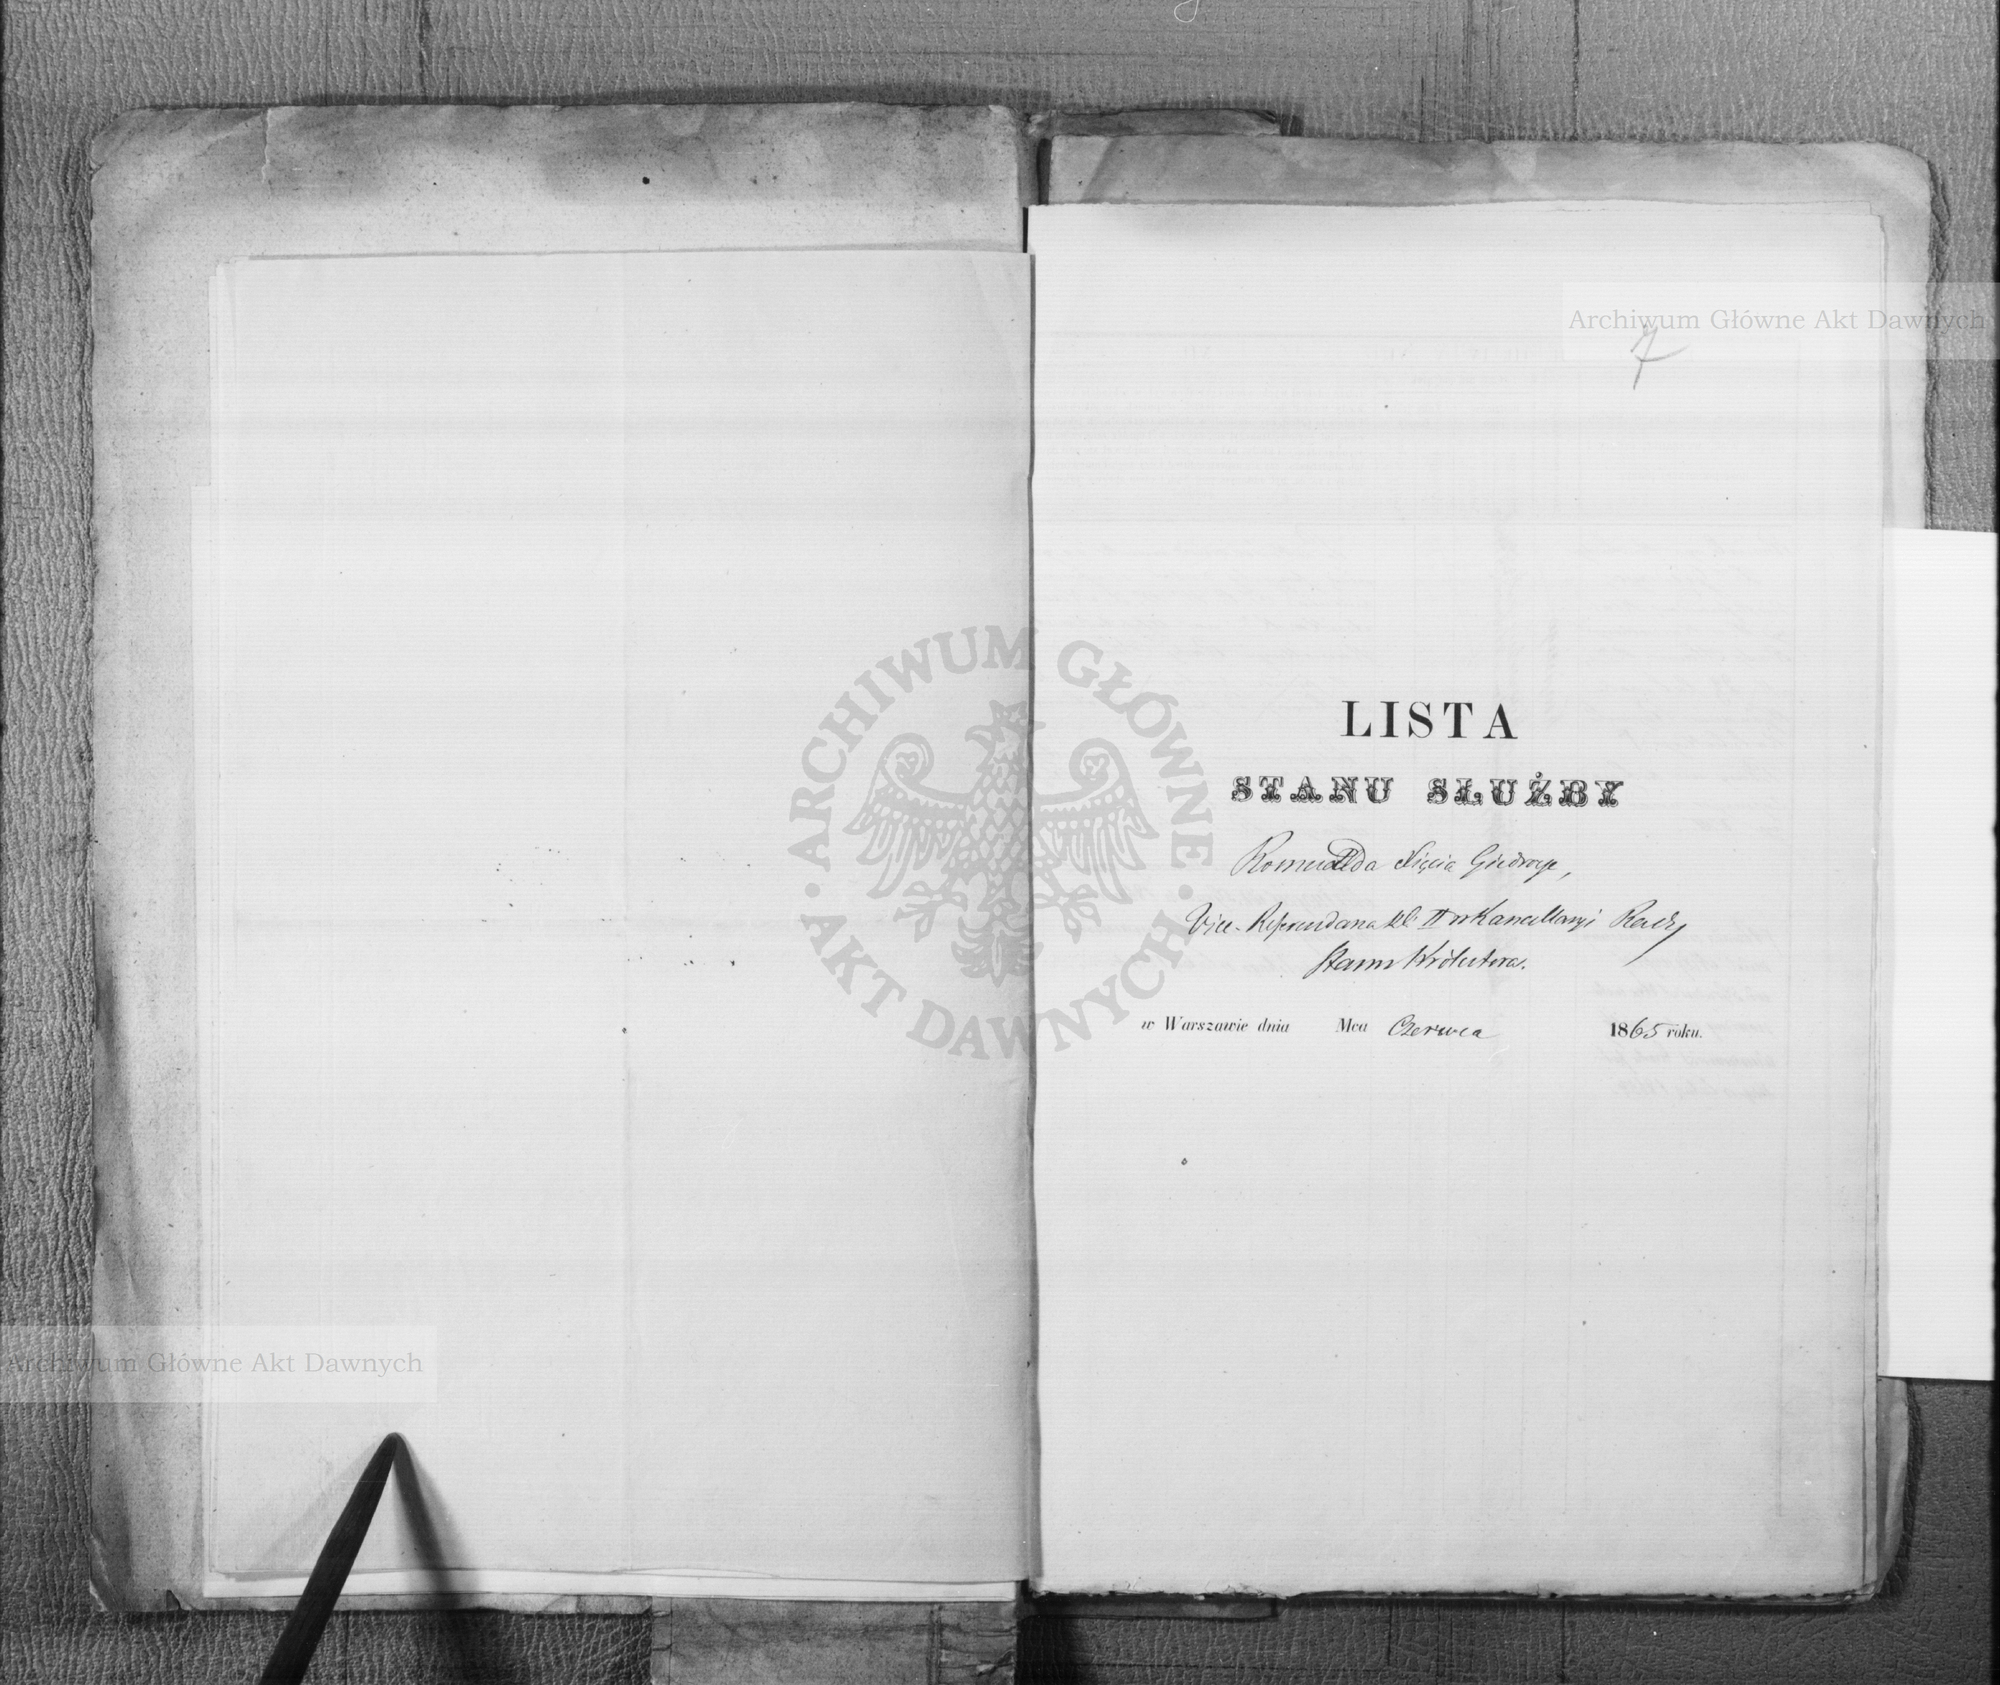 Archiwum Główne Akt Dawnych
7
LISTA
STANU SŁUŻBY
Romualda Xięcia Giedroyc,
Vice-Referendarza kl: II w Kancellaryi Rady
Stanu Królestwa.
w Warszawie dnia Mca Czerwca 1865 roku.
ARCHIWUM GŁÓWNE
AKT DAWNYCH
Archiwum Główne Akt Dawnych